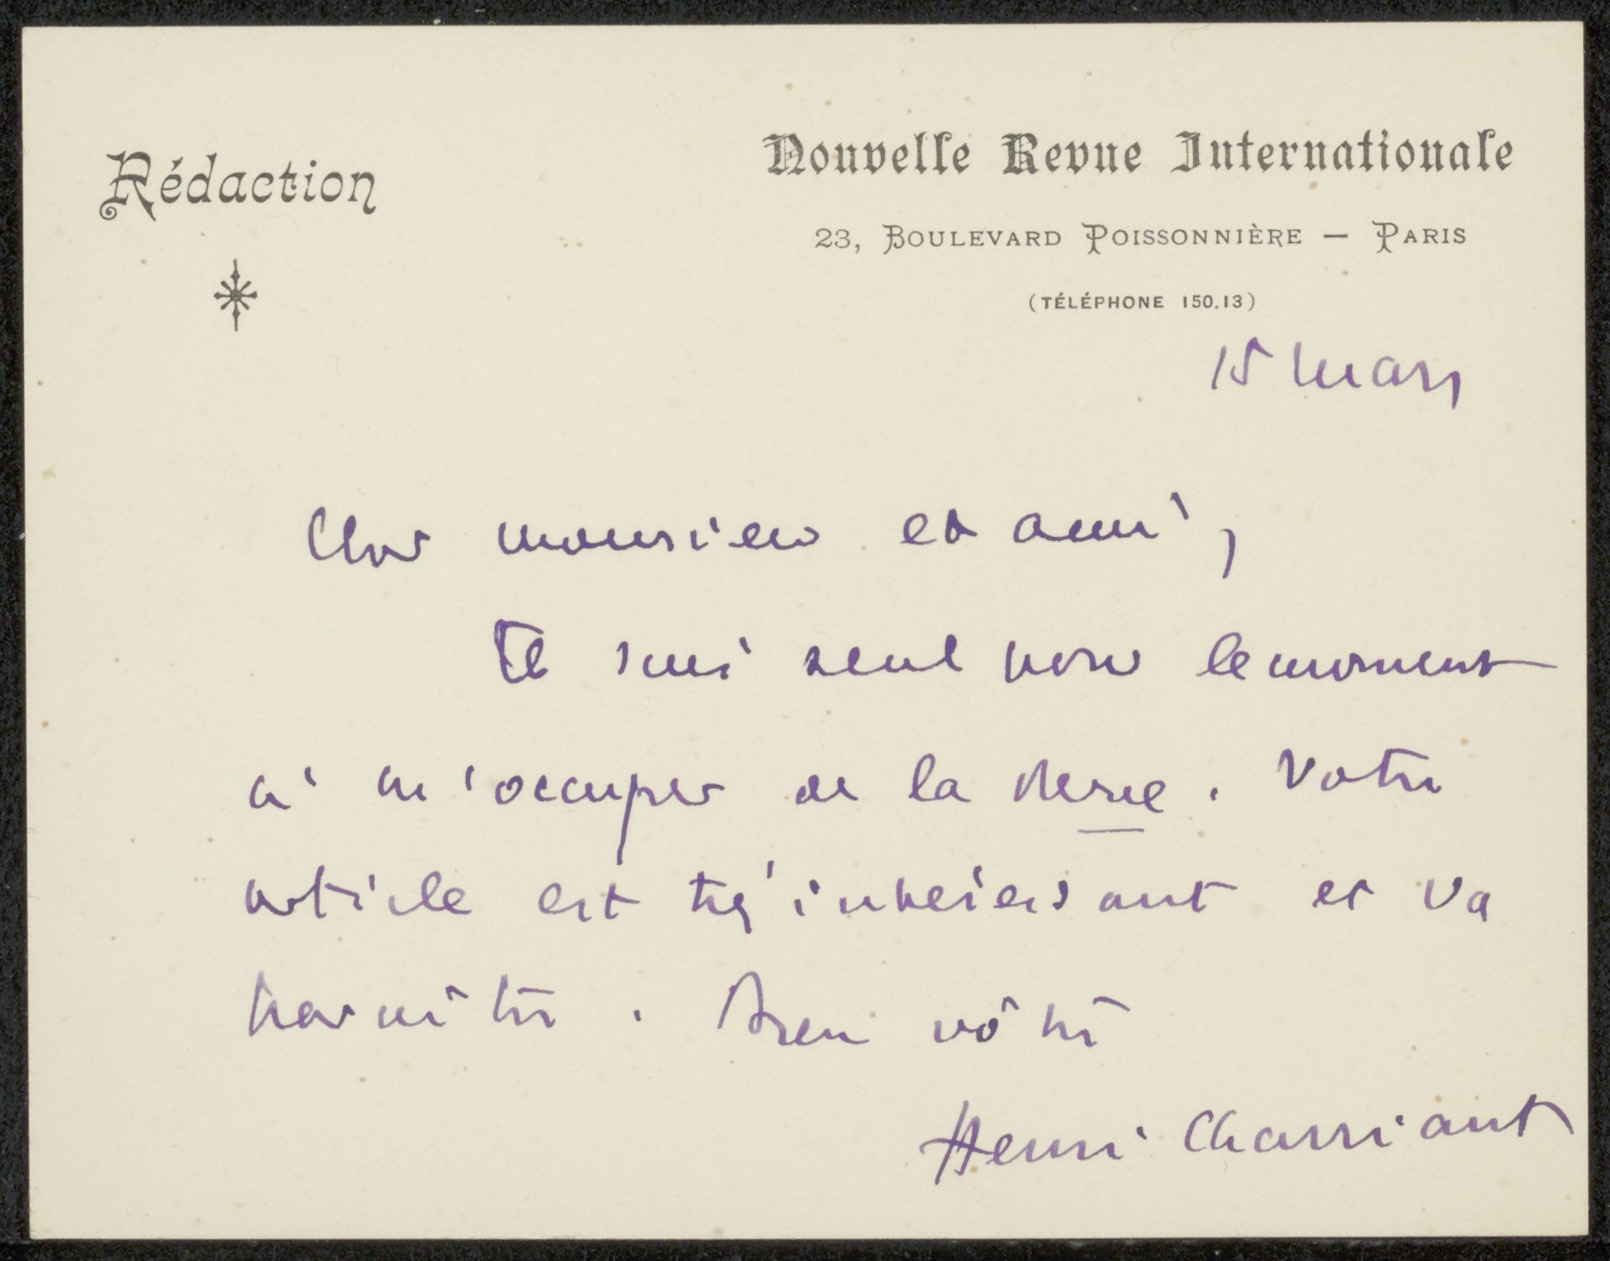 Rédaction
Nouvelle Revue Internationale
23, Boulevard Poissonnière — Paris
(TÉLÉPHONE 150.13)
15 Mars
Cher monsieur et ami,
Je suis seul pour le moment
à m'occuper de la Revue. Votre
article est très intéressant et va
paraître. Bien vôtre
Henri Charriaut